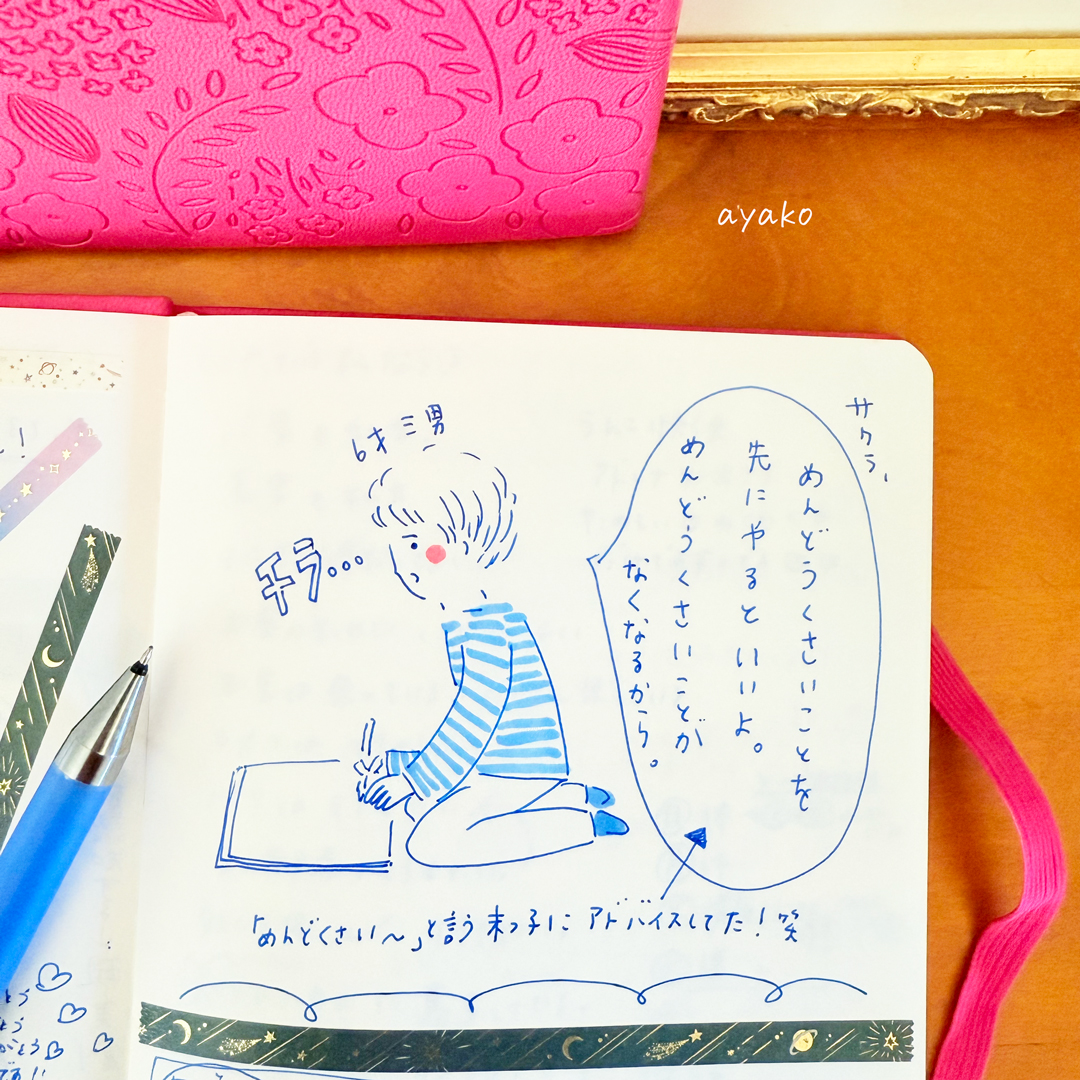 ayako
6才 三男
チラ...
サクラ、
めんどうくさいことを
先にやるといいよ。
めんどうくさいことが
なくなるから。
「めんどくさい〜」と言う末っ子に アドバイスしてた！笑